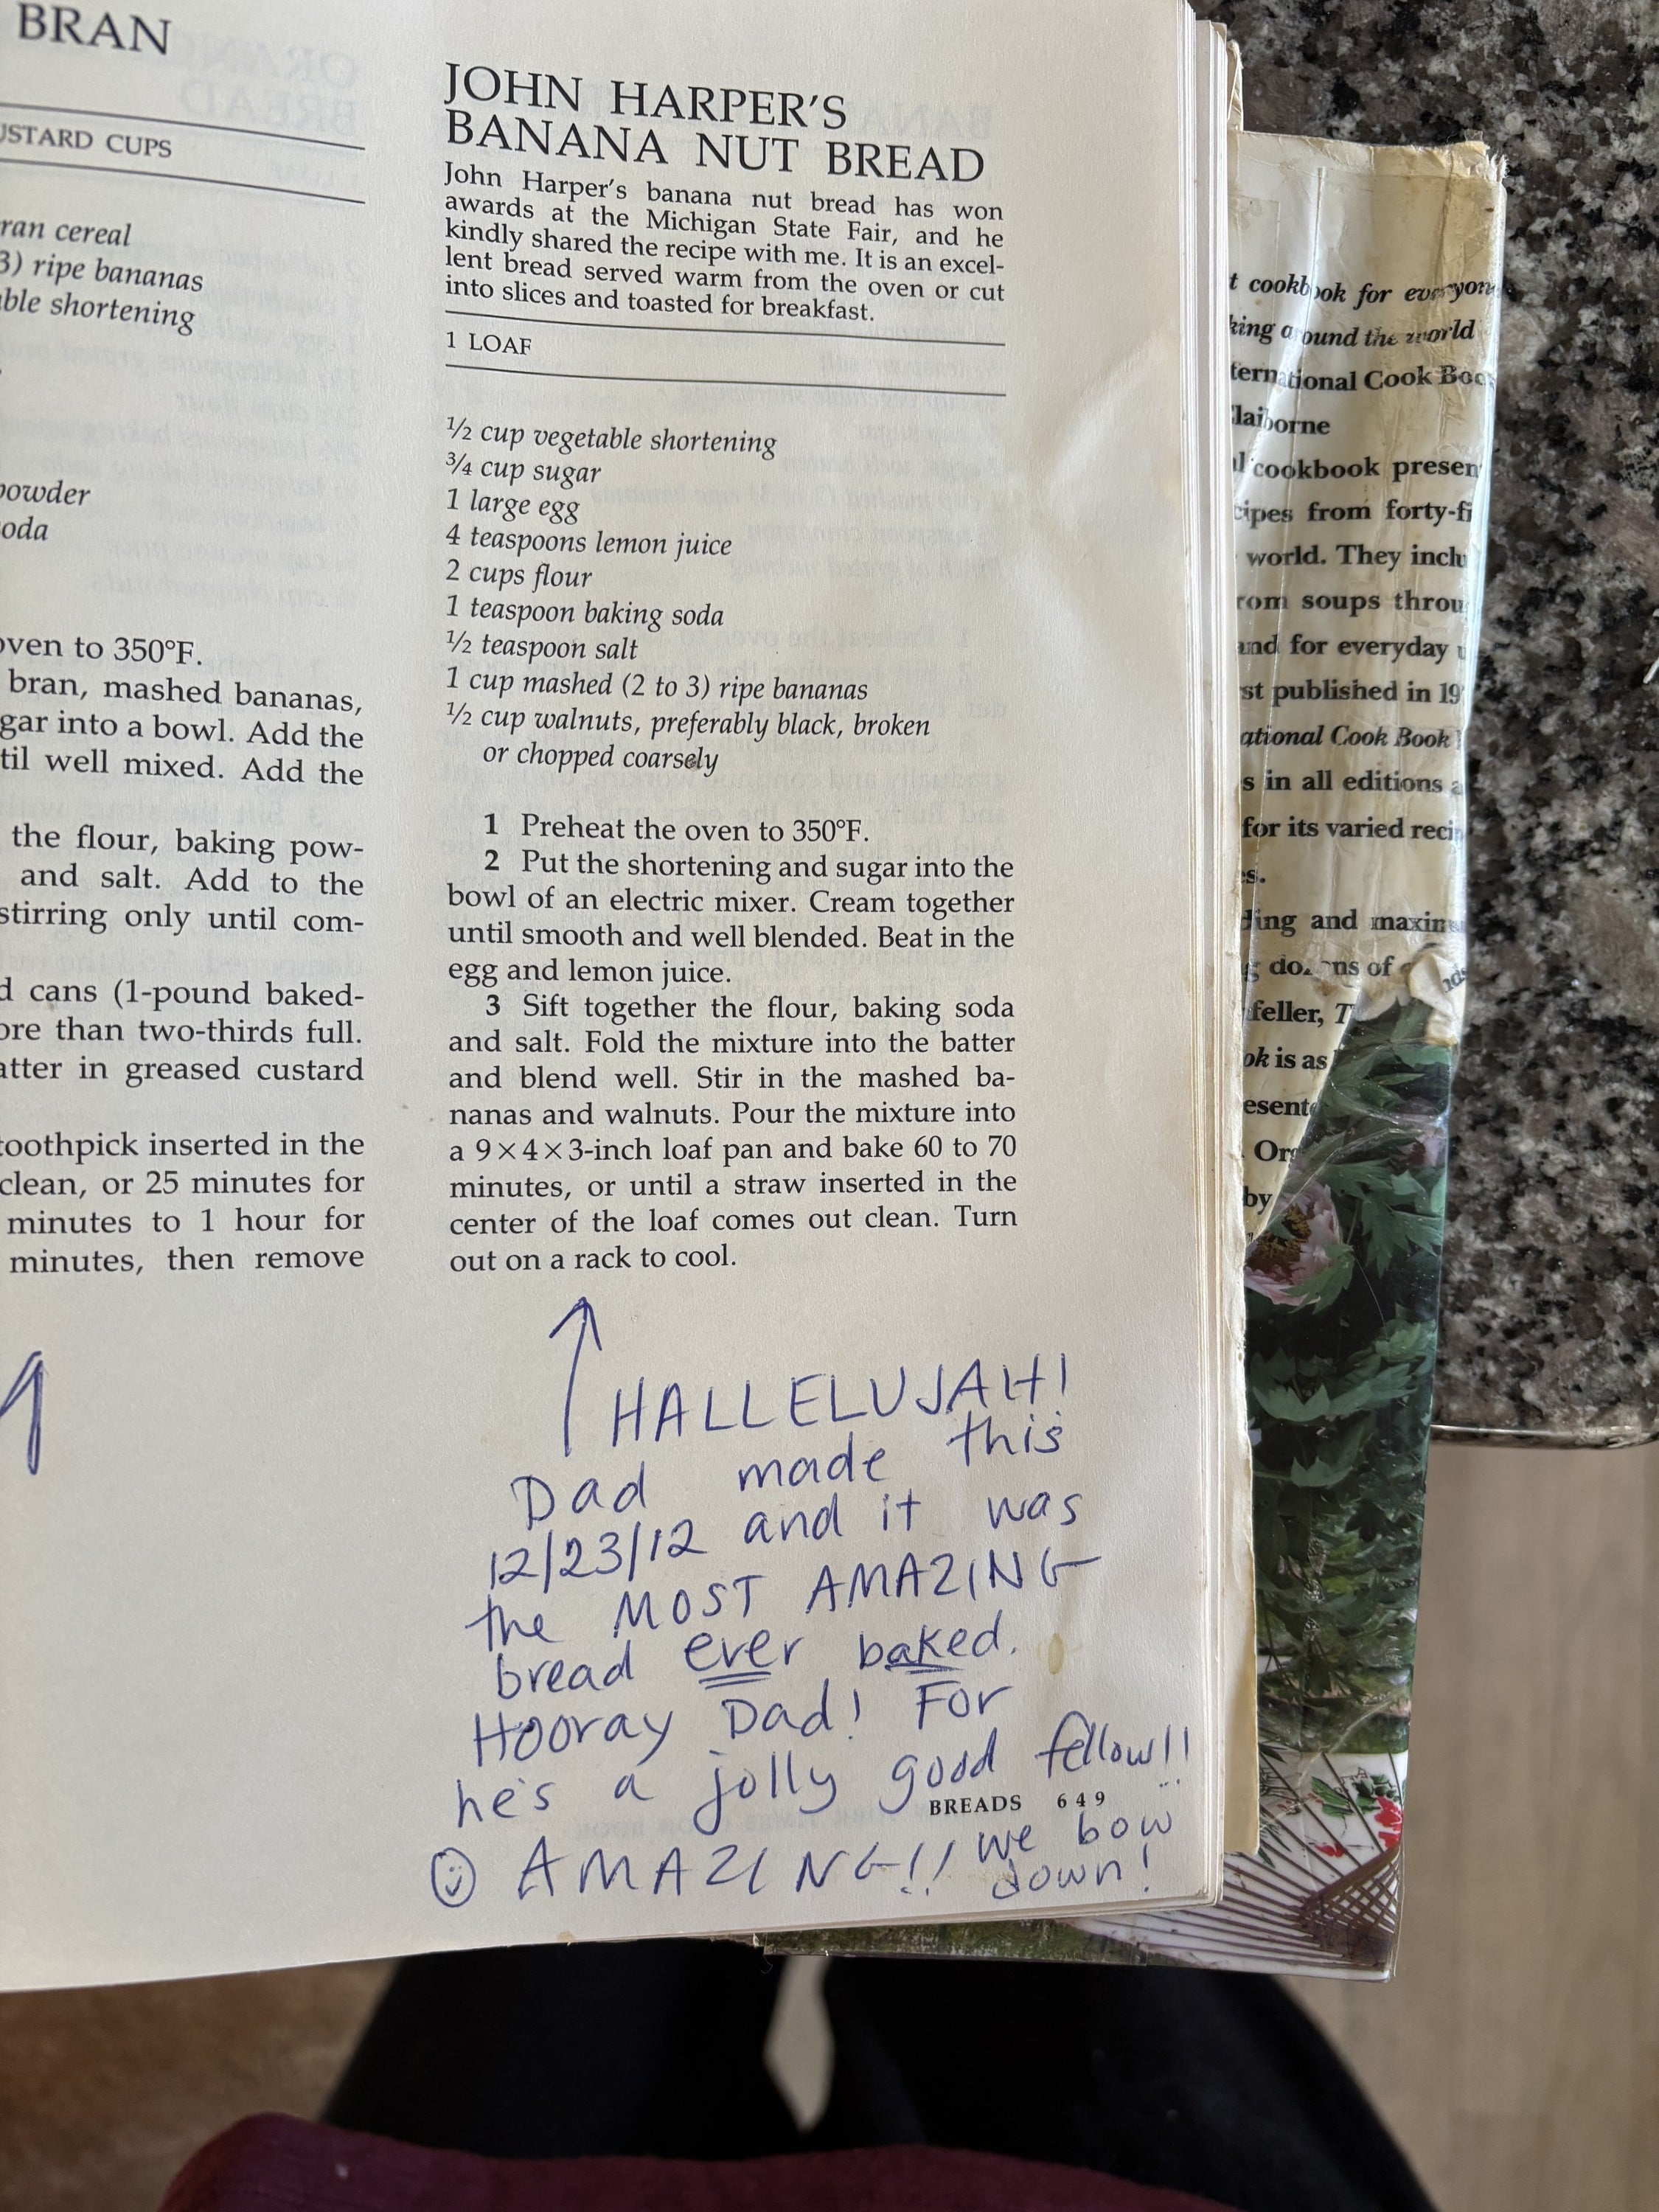 BRAN
USTARD CUPS
ran cereal
3) ripe bananas
ble shortening
powder
oda
oven to 350°F.
bran, mashed bananas,
gar into a bowl. Add the
til well mixed. Add the
the flour, baking pow-
and salt. Add to the
stirring only until com-
d cans (1-pound baked-
ore than two-thirds full.
atter in greased custard
toothpick inserted in the
clean, or 25 minutes for
minutes to 1 hour for
minutes, then remove
JOHN HARPER'S
BANANA NUT BREAD
John Harper's banana nut bread has won
awards at the Michigan State Fair, and he
kindly shared the recipe with me. It is an excel-
lent bread served warm from the oven or cut
into slices and toasted for breakfast.
1 LOAF
½ cup vegetable shortening
¾ cup sugar
1 large egg
4 teaspoons lemon juice
2 cups flour
1 teaspoon baking soda
½ teaspoon salt
1 cup mashed (2 to 3) ripe bananas
½ cup walnuts, preferably black, broken
or chopped coarsely
1 Preheat the oven to 350°F.
2 Put the shortening and sugar into the
bowl of an electric mixer. Cream together
until smooth and well blended. Beat in the
egg and lemon juice.
3 Sift together the flour, baking soda
and salt. Fold the mixture into the batter
and blend well. Stir in the mashed ba-
nanas and walnuts. Pour the mixture into
a 9×4×3-inch loaf pan and bake 60 to 70
minutes, or until a straw inserted in the
center of the loaf comes out clean. Turn
out on a rack to cool.
HALLELUJAH!
Dad made this
12/23/12 and it was
the MOST AMAZING
bread ever baked.
Hooray Dad! For
he's a jolly good fellow!!
BREADS 649
☺ AMAZING!! we bow
down!
t cookbook for everyone
king around the world
ternational Cook Boo
Claiborne
l cookbook presen
cipes from forty-fi
world. They inclu
rom soups throu
and for everyday u
st published in 19
ational Cook Book
s in all editions a
for its varied reci
es.
ding and maxim
g dozens of
feller, T
ok is as
esente
Org
by